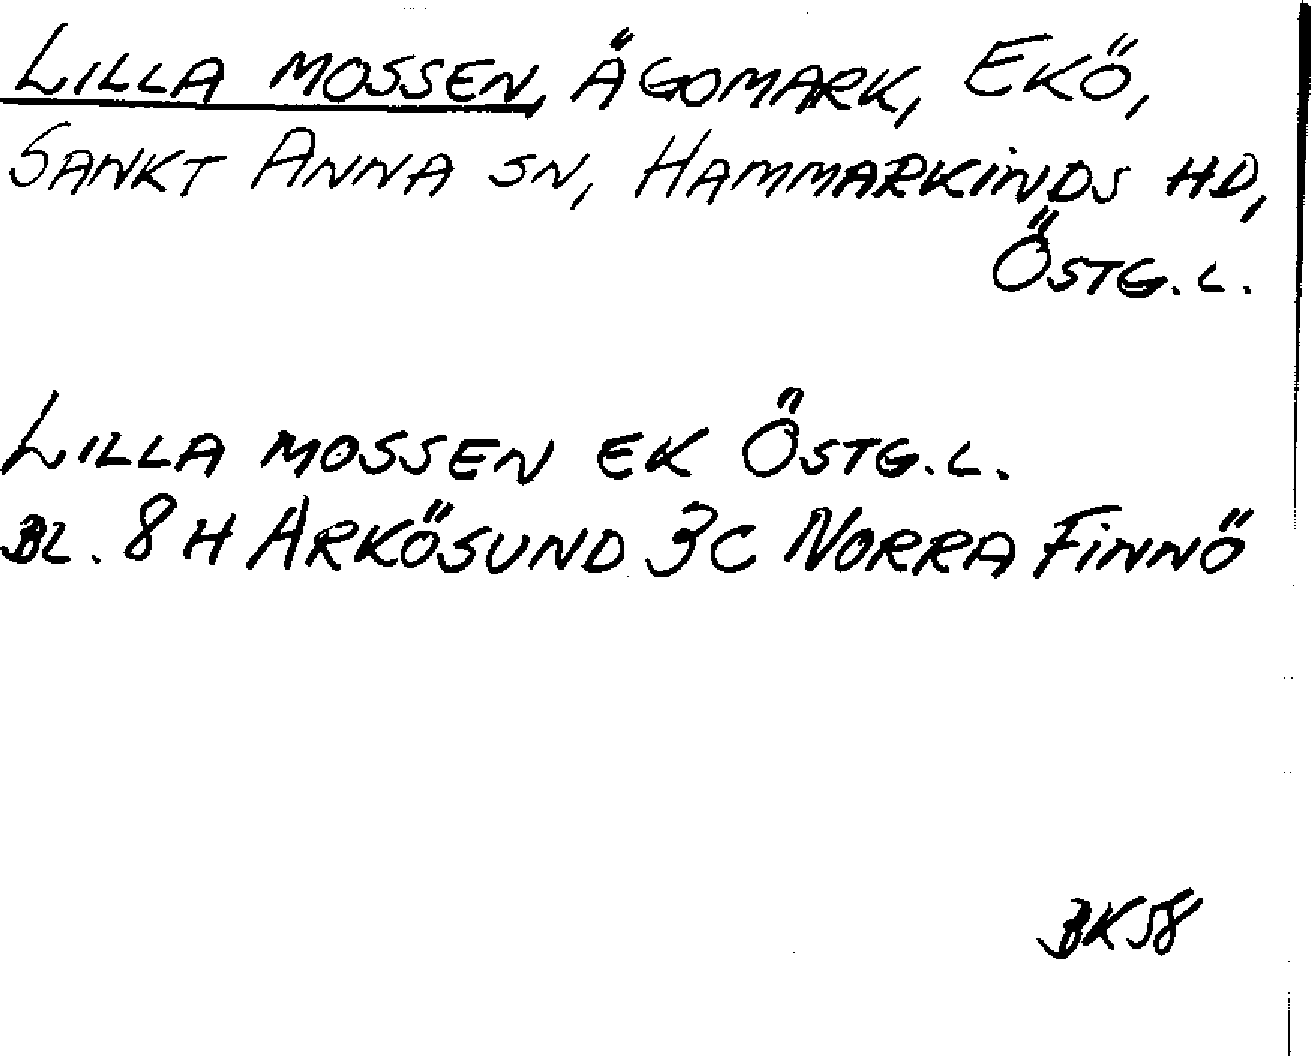 LILLA MOSSEN, ÄGOMARK, EKÖ,
SANKT ANNA SN, HAMMARKINDS HD,
ÖSTG.L.
LILLA MOSSEN EK ÖSTG.L.
BL. 8H ARKÖSUND 3C NORRA FINNÖ
BK58